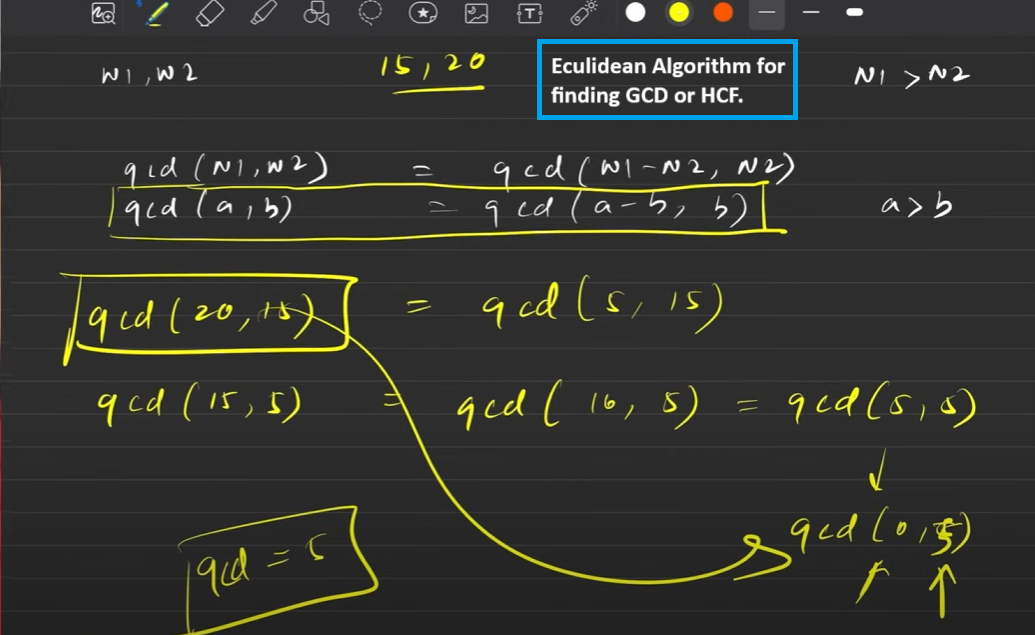 N1, N2 15, 20 Eculidean Algorithm for N1 > N2
finding GCD or HCF.
gcd (N1, N2) = gcd (N1-N2, N2)
gcd (a, b) = gcd (a-b, b) a>b
gcd (20, 15) = gcd (5, 15)
gcd (15, 5) = gcd (10, 5) = gcd (5, 5)
gcd (0, 5)
gcd = 5